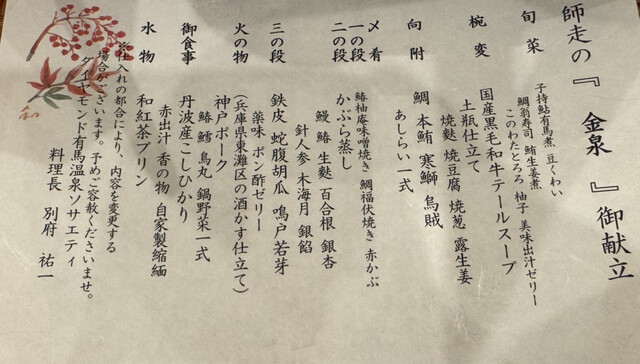 師走の『 金泉 』御献立
旬菜
子持鮎有馬煮 豆くわい
鯛翁寿司 鮪生姜煮
このわたとろろ 柚子 美味出汁ゼリー
椀変
国産黒毛和牛テールスープ
土瓶仕立て
焼麩 焼豆腐 焼葱 露生姜
向附
鯛 本鮪 寒鰤 烏賊
あしらい一式
〆肴
一の段
鰆柚庵味噌焼き 鯛福伏焼き 赤かぶ
二の段
かぶら蒸し
鰻 鰆 生麩 百合根 銀杏
針人参 木海月 銀餡
三の段
鉄皮 蛇腹胡瓜 鳴戸若芽
薬味 ポン酢ゼリー
火の物
(兵庫県東灘区の酒かす仕立て)
神戸ポーク
鰆 鱈 烏丸 鍋野菜一式
御食事
丹波産こしひかり
赤出汁 香の物 自家製縮緬
水物
和紅茶プリン
※仕入れの都合により、内容を変更する
場合がございます。予めご容赦くださいませ。
ダイヤモンド有馬温泉ソサエティ
料理長 別府 祐一
和